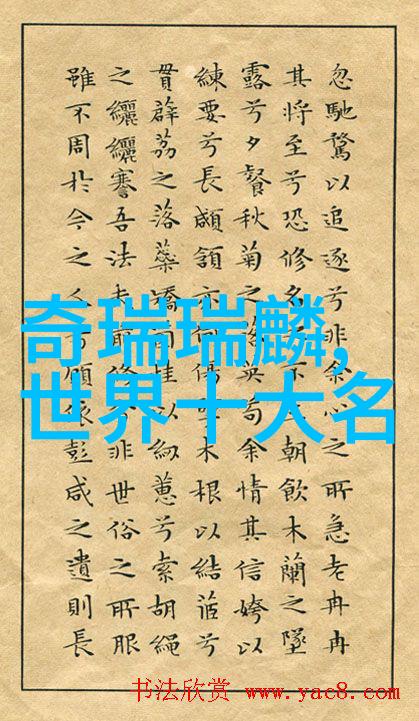 忽馳騖以追逐兮非余心之所急老冉冉
其將至兮恐修名不朝飲木蘭之墜
露兮夕餐秋菊之英苟余情其信姱以
練要兮長顑頷亦傷木根以結茝兮
貫薜荔之落蘂矯桂以紉蕙兮索胡繩
之纚纚謇吾法非世俗之所服
雖不周於今之人兮願依彭咸之遺則長
奇瑞瑞麟,
世界十大名
书法欣赏 www.yac8.com